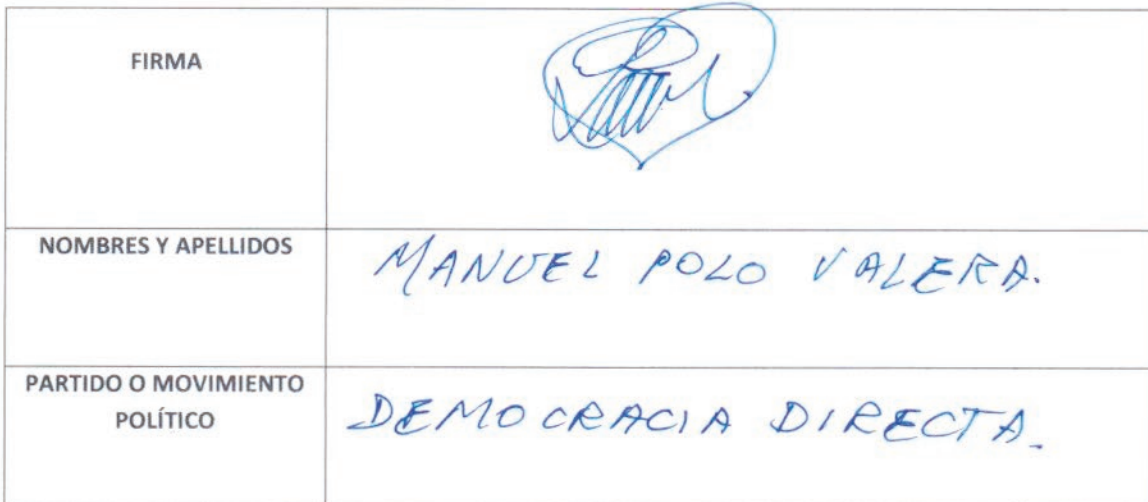 FIRMA
NOMBRES Y APELLIDOS
MANUEL POLO VALERA.
PARTIDO O MOVIMIENTO
POLÍTICO
DEMOCRACIA DIRECTA.